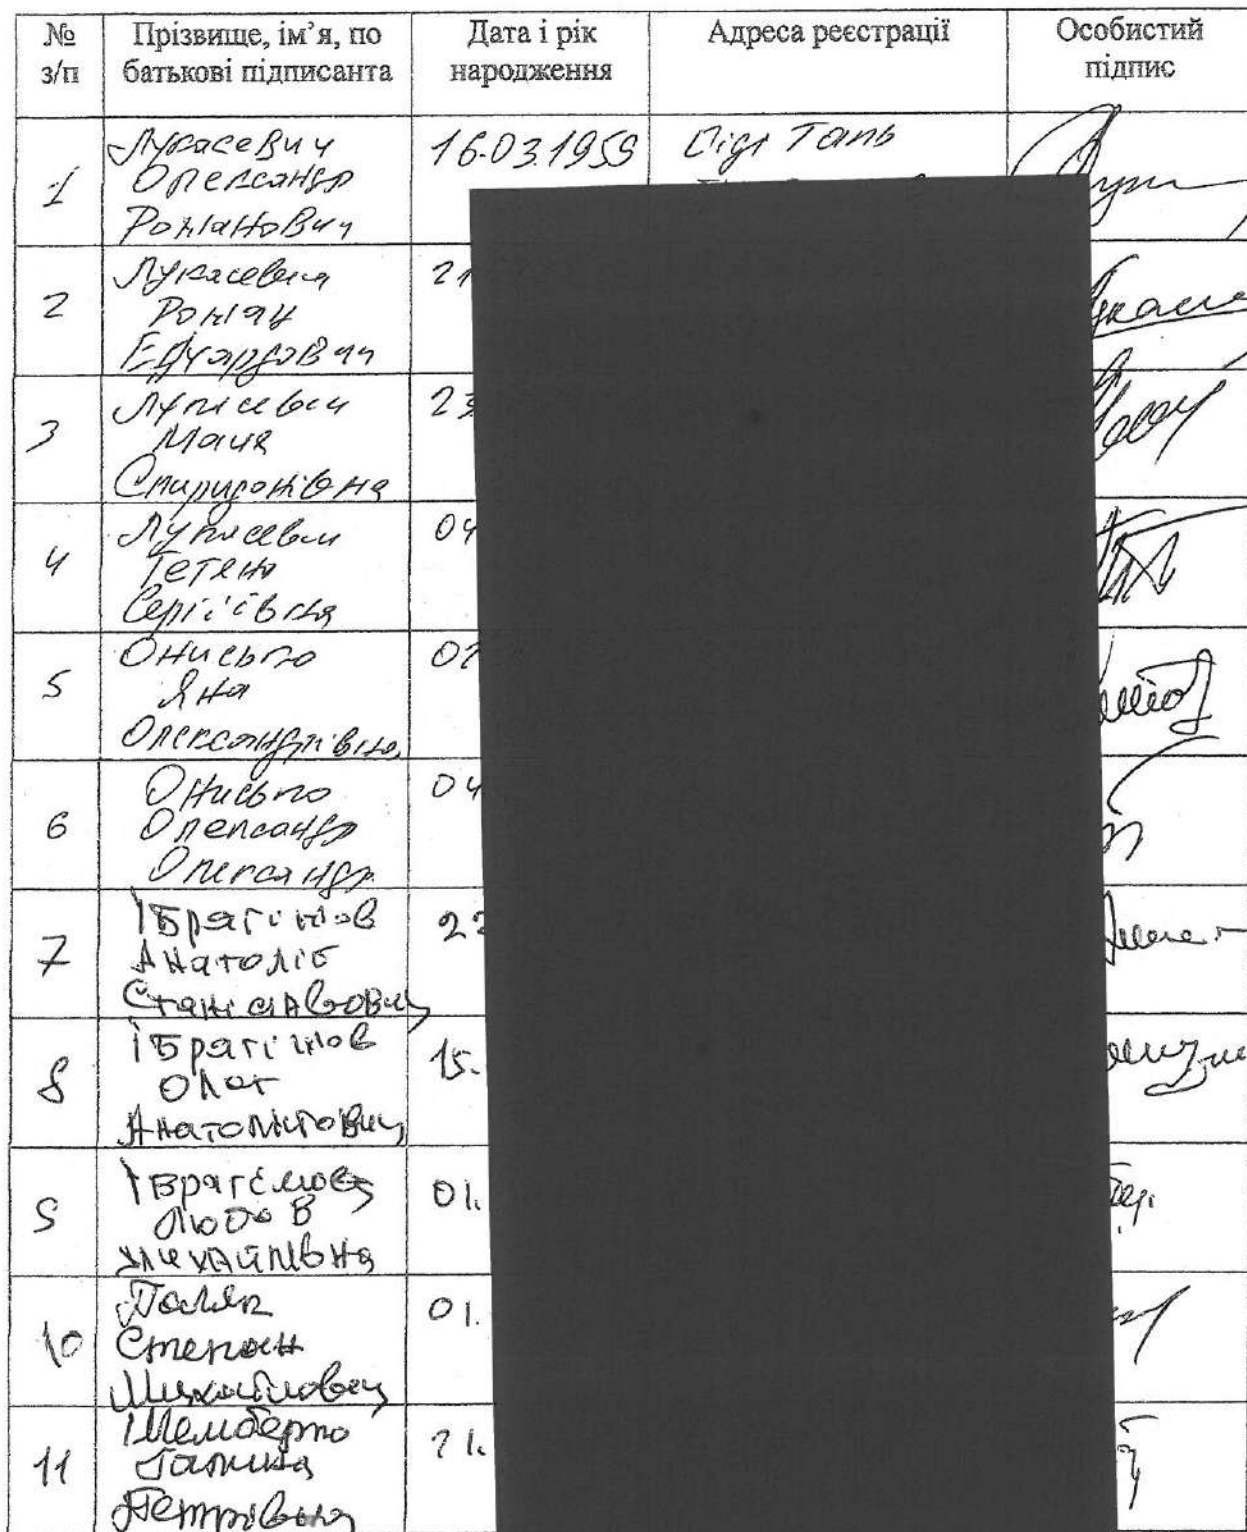 № з/п
Прізвище, ім’я, по батькові підписанта
Дата і рік народження
Адреса реєстрації
Особистий підпис
1
Лукасевич
Олександр
Романович
16.03.1959
2
Лукасевич
Роман
Едуардович
21
3
Лукасевич
Маия
Спиридонівна
23
4
Лукасевич
Тетяна
Сергіївна
04
5
Онисько
Яна
Олександрівна
6
Онисько
Олександр
Олександр.
04
7
Ібрагімов
Анатоліє
Станіславович
22
8
Ібрагімов
Олег
Анатолійович
15.
9
Любов
Михайлівна
01.
10
Поляк
Степан
Михайлович
01.
11
Галина
Петрівна